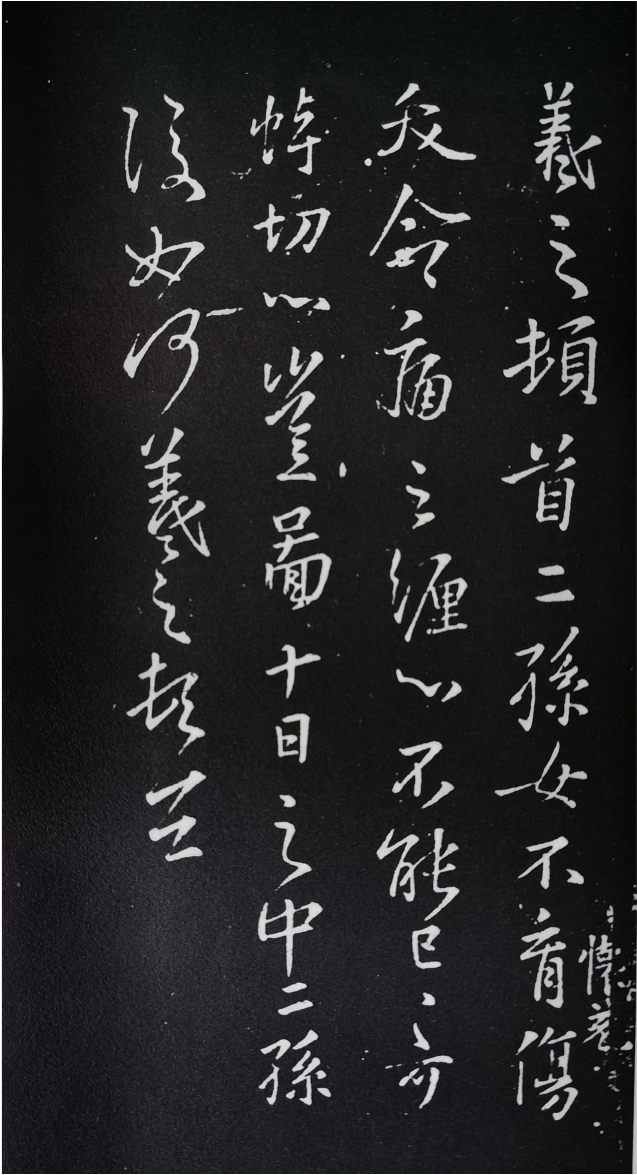 羲之頓首二孫女不育傷
懷充
夭命痛之纏心不能已々奈
悼切心豈圖十日之中二孫
復如何羲之頓首